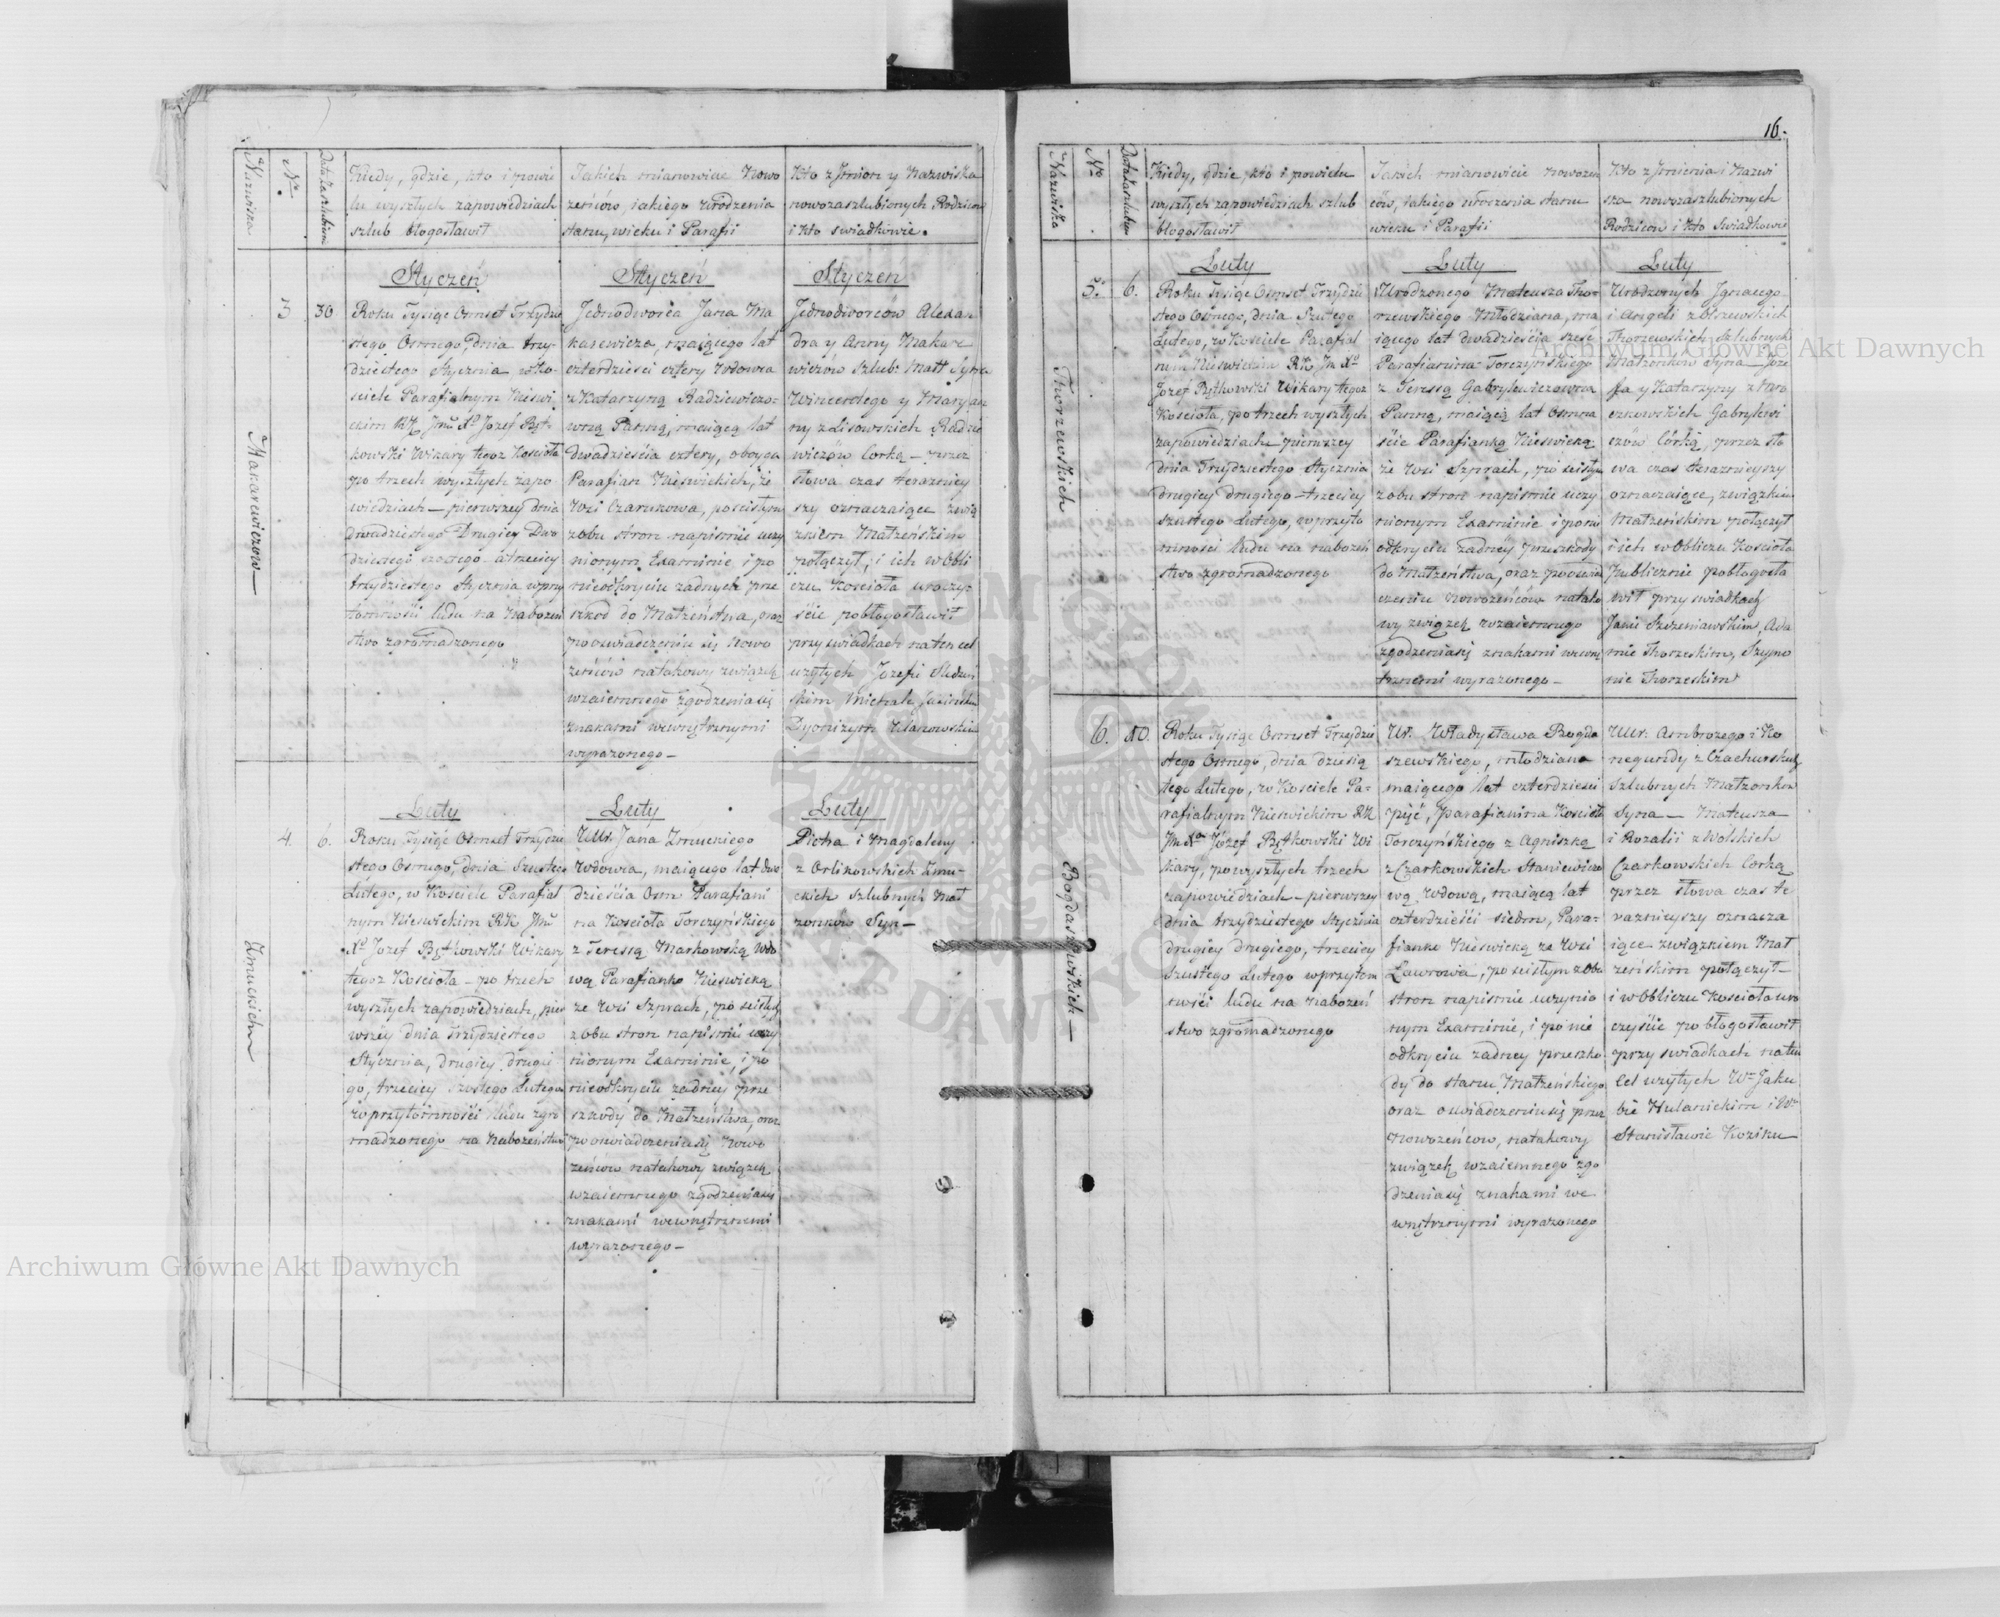 16.
Nazwiska
Nro
Data Zaszlubienia
Kiedy, gdzie, kto i powie
lu wyszłych zapowiedziach
szlub błogosławił
Jakich mianowicie Nowo
żeńców, iakiego urodzenia
stanu, wieku i Parafii
Kto z Jmion y Nazwiska
nowozaszlubionych Rodziców
i kto swiadkowie.
Makarewiczow—
3
30
Styczeń
Roku Tysiąc Osmset Trzydzie
stego Osmego, dnia trzy
dziestego Stycznia w Ko
ściele Parafialnym Kiewi
ckim RK Jmć Xd Jozef Pęt
kowski Wikary tegoz Kościoła
po trzech wyszłych zapo
wiedziach — pierwszey dnia
dwudziestego Drugiey Dwu
dziestego szostego a trzeciey
trzydziestego Stycznia w przy
tomności ludu na Nabożeń
stwo zgromadzonego
Styczeń
Jednodworca Jana Ma
karewicza, maiącego lat
czterdzieści cztery Wdowca
z Katarzyną Radziewiczo-
wną Panną, maiącą lat
dwadzieścia cztery, oboyga
Parafian Kieświckich, ze
Wsi Czarukowa, pościsłym
z obu stron napiśmie uczy
nionym Examinie i po
nieodkryciu żadnych prze
szkod do Małżeństwa, oraz
po oswiadczeniu się Nowo
żeńców natakowy związek
wzaiemnego zgodzeniasię
znakami wewnętrznymi
wyrażonego—
Styczeń
Jednodworców Alexan
dra y Anny Makare
wiczów szlub: Małż Syna
Wincentego y Maryan
ny z Lisowskich Radzie
wiczów Corką — przez
słowa czas teraźniey
szy oznaczaiące zwią
zkiem Małżeńskim
połączył, i ich w Obli
czu Kościoła uroczy-
ście pobłogosławił
przy swiadkach na ten cel
użytych Jozefie
Michale
Dyonizym
Zmuckich
4.
6.
Luty
Roku Tysiąc Osmset Trzydzie
stego Osmego, dnia Szustego
Lutego, w Kościele Parafial
nym Kieswickim RK Jmć
Xd Jozef Pętkowski Wikary
tegoz Kościoła — po trzech
wyszłych zapowiedziach, pier
wszey dnia Trzydziestego
Stycznia, drugiey drugie
go, trzeciey szostego Lutego
w przytomności ludu zgro
madzonego na Nabożeństwo
Luty
Jana Zmuckiego
Wdowca, maiącego lat dwa
dzieścia Osm Parafiani
na Kościoła Torczyńskiego
z Teressą Markowską Wdo
wą Parafianko Kieswicką
ze Wsi Szprach, po ścisłym
z obu stron napismie uczy
nionym Examinie, i po
nieodkryciu żadney prze
szkody do Małżeństwa, oraz
po oświadczeniasię Nowo
żeńców natakowy związek
wzaiemnego zgodzeniasię
znakami wewnętrznemi
wyrażonego—
Luty
Piotra i Magdaleny
z Orlikowskich Zmu-
ckich Szlubnych Mał
żonków Syn—
Nazwiska
Nro
Data Zaszlubienia
Kiedy, gdzie, kto i powielu
wyszłych zapowiedziach szlub
błogosławił
Jakich mianowicie nowożeń
ców, iakiego urodzenia stanu
wieku i Parafii
Kto z Jmienia i Nazwi
ska nowozaszlubionych
Rodziców i kto Swiadkowie
Thorzewskich
5.
6.
Luty
Roku Tysiąc Osmset Trzydzie
stego Osmego, dnia Szustego
Lutego, w Kościele Parafial
nym Kieswickim RK Jm Xd
Jozef Pętkowski Wikary tegoz
Kościoła, po trzech wyszłych
zapowiedziach pierwszey
dnia Trzydziestego Stycznia
drugiey drugiego — trzeciey
szustego Lutego, w przyto
mności ludu na nabożeń
stwo zgromadzonego
Luty
Urodzonego Mateusza Tho-
rzewskiego Młodziana, ma
iącego lat dwadzieścia sześć
Parafianina Torczyńskiego
z Teressą Gabrylewiczowną
Panną, maiącą lat Osmna
ście Parafianką Kieswicką
ze Wsi Szprach, po ścisłym
z obu stron napismie uczy
nionym Examinie i ponie
odkryciu żadney przeszkody
do Małżeństwa, oraz pooswiad
czeniu Nowożeńców natako
wy związek wzaiemnego
zgodzeniasię znakami wewnę
trznemi wyrażonego—
Luty
Urodzonych Jgnacego
i Angeli z Olszewskich
Thorzewskich, szlubnych
Małżonków Syna — Joze
fa y Katarzyny z
Gabrylewi
czów Córką, przez sło
wa czas teraznieyszy
oznaczaiące, związkiem
Małżeńskim połączył
i ich w Obliczu Kościoła
Publicznie pobłogosła
wił przy swiadkach
Janie Szczeniawskim, Ada
mie Thorzeskim, Szymo
nie Thorzeskim
Bogdaszewskich—
6.
10.
Roku Tysiąc Osmset Trzydzie
stego Osmego, dnia dziesią
tego Lutego, w Kościele Pa-
rafialnym Kieswickim RK
Jm Xd Jozef Pętkowski Wi
kary, po wyszłych trzech
zapowiedziach — pierwszey
dnia trzydziestego Stycznia
drugiey drugiego, trzeciey
szustego Lutego w przytom
ności ludu na Nabożeń
stwo zgromadzonego
Ur. Władysława Bogda
szewskiego, młodziana
maiącego lat czterdzieści
pięć, Parafianina Kościoła
Torczyńskiego z Agniszką
z Czarkowskich Staniewiczo
wą Wdową, maiącą lat
czterdzieści siedm, Para-
fianko Kieswicką ze Wsi
Ławrowia, po ścisłym z obu
stron napismie uczynio
nym Examinie, i po nie
odkryciu żadney przeszko
dy do stanu Małżeńskiego
oraz oswiadczeniusię przez
Nowożeńców, natakowy
związek wzaiemnego zgo
dzeniasię znakami we
wnętrznymi wyrażonego
Ambrożego i Ku
negundy z Czachurskich
Szlubnych Małżonków
Syna — Mateusza
i Rozalii z Wolskich
Czarkowskich Corką
przez słowa czas te
raznieyszy oznacza
iące związkiem Mał
żeńskim połączył—
i w Obliczu Kościoła uro
czyście pobłogosławił
przy swiadkach na ten
cel użytych Wm Jaku
bie Hulanickim i Wm
Stanisławie Koziku—
Archiwum Główne Akt Dawnych
Archiwum Główne Akt Dawnych